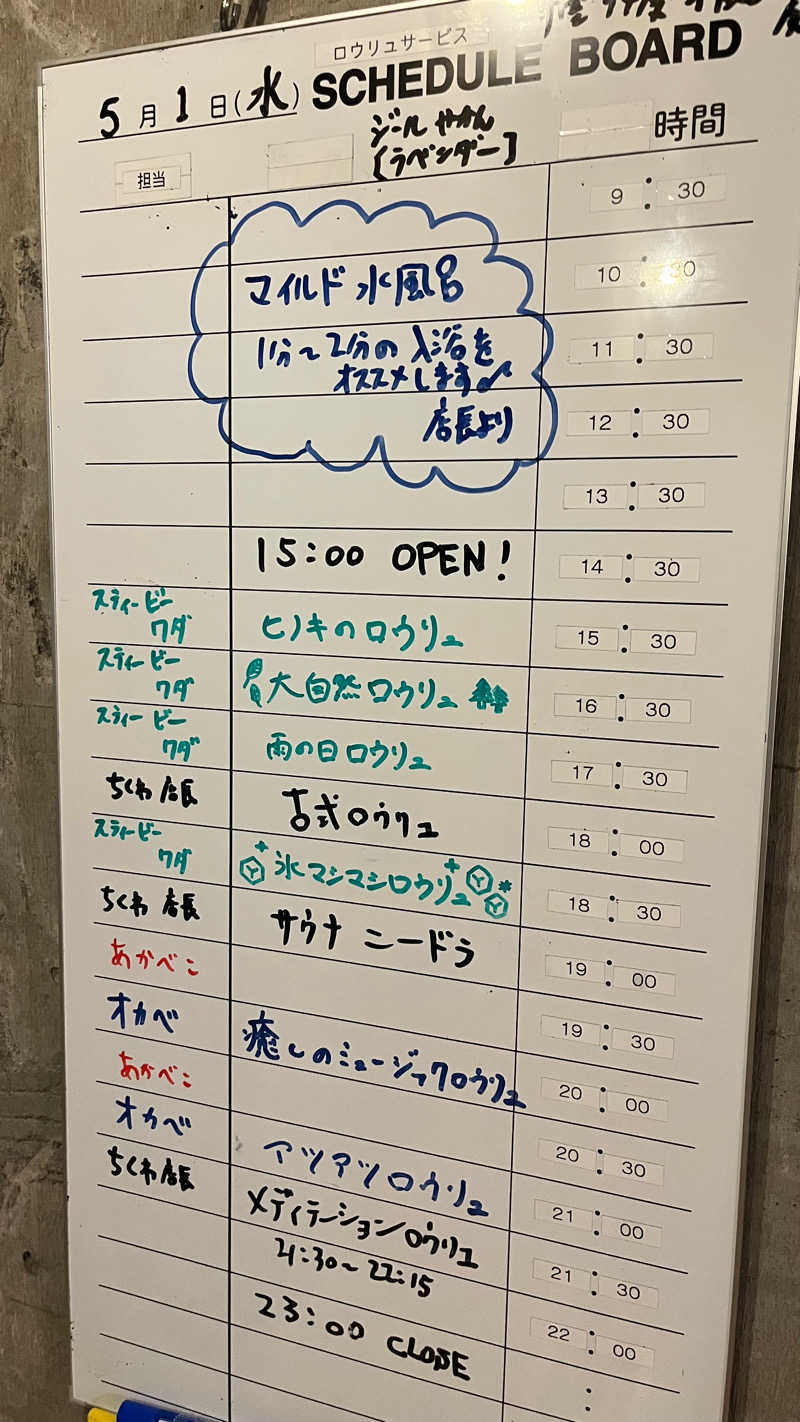 ロウリュサービス
SCHEDULE BOARD
5月1日(水)
ジールやかん
[ラベンダー]
担当
時間
9:30
マイルド水風呂
10:30
1分〜2分の入浴を
オススメします
11:30
店長より
12:30
13:30
15:00 OPEN!
14:30
スティービー
ワダ
ヒノキのロウリュ
15:30
スティービー
ワダ
大自然ロウリュ
16:30
スティービー
ワダ
雨の日ロウリュ
17:30
ちくわ店長
古式ロウリュ
18:00
スティービー
ワダ
氷マシマシロウリュ
18:30
ちくわ店長
サウナニードラ
19:00
あかべこ
19:30
オカベ
癒しのミュージックロウリュ
20:00
あかべこ
20:30
オカベ
アツアツロウリュ
21:00
ちくわ店長
メディテーションロウリュ
21:30
21:30〜22:15
22:00
23:00 CLOSE
: